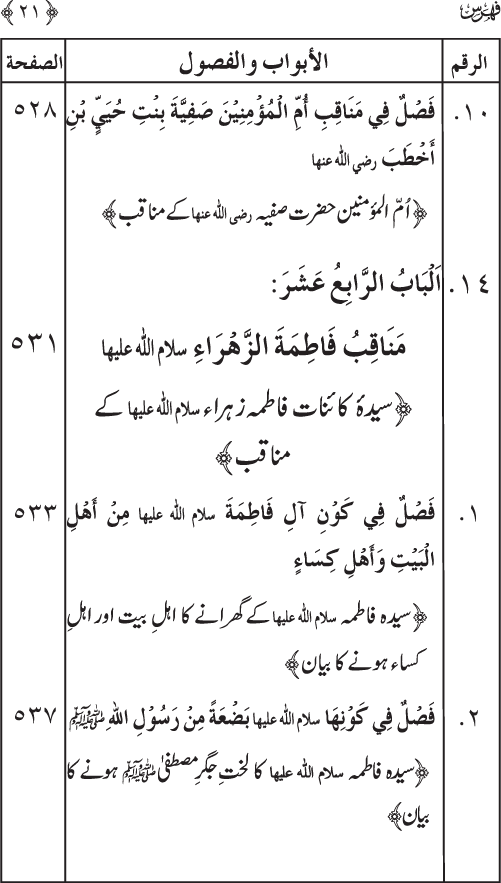 فہرس ﴿ ٢١ ﴾
الرقم الأبواب والفصول الصفحة
١٠. فَصْلٌ فِي مَنَاقِبِ أُمِّ الْمُؤْمِنِيْنَ صَفِيَّةَ بِنْتِ حُيَيِّ بْنِ ٥٢٨
أَخْطَبَ رضي الله عنها
﴿اُمّ المؤمنین حضرت صفیہ رضی اللہ عنہا کے مناقب﴾
١٤. اَلْبَابُ الرَّابِعُ عَشَرَ:
مَنَاقِبُ فَاطِمَةَ الزَّهْرَاءِ سلام الله عليها ٥٣١
﴿سیدۂ کائنات فاطمہ زہراء سلام اللہ علیہا کے
مناقب﴾
١. فَصْلٌ فِي كَوْنِ آلِ فَاطِمَةَ سلام الله عليها مِنْ أَهْلِ ٥٣٣
الْبَيْتِ وَأَهْلِ كِسَاءٍ
﴿سیدہ فاطمہ سلام اللہ علیہا کے گھرانے کا اہلِ بیت اور اہلِ
کساء ہونے کا بیان﴾
٢. فَصْلٌ فِي كَوْنِهَا سلام الله عليها بَضْعَةً مِنْ رَسُوْلِ اللهِ ﷺ ٥٣٧
﴿سیدہ فاطمہ سلام اللہ علیہا کا لختِ جگرِ مصطفیٰ ﷺ ہونے کا
بیان﴾